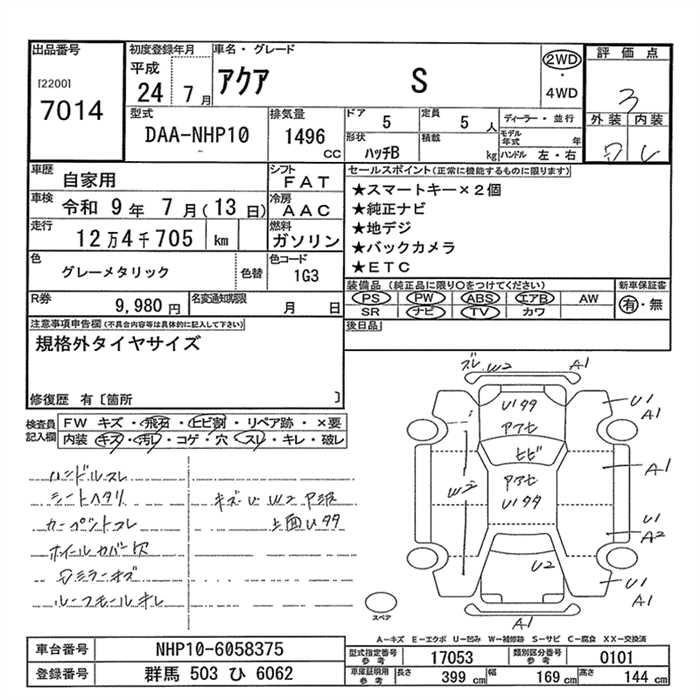 出品番号
[2200]
7014
初度登録年月
平成
24 7月
車名・グレード
アクア S
2WD
・
4WD
評価点
3
外装 内装
型式
DAA-NHP10
排気量
1496
CC
ドア 5
定員 5 人
形状 ハッチB
積載 kg
ディーラー・並行
モデル年式 年
ハンドル 左・右
車歴 自家用
車検 令和 9年 7月(13日)
走行 12万4千705 km
色 グレーメタリック 色替
シフト FAT
冷房 AAC
燃料 ガソリン
色コード 1G3
R券 9,980円
名変通知期限 月 日
セールスポイント(正常に機能するものに限ります)
★スマートキー×2個
★純正ナビ
★地デジ
★バックカメラ
★ETC
装備品(純正品に限り○をつけてください)
PS PW ABS エアB AW
SR ナビ TV カワ
新車保証書
有・無
後日品
注意事項申告欄(不具合内容等は具体的に記入して下さい)
規格外タイヤサイズ
修復歴 有〔箇所 〕
検査員記入欄
FW キズ・飛石・ヒビ割・リペア跡・×要
内装 キズ・汚レ・コゲ・穴・スレ・キレ・破レ
ハンドルスレ
シートヘタリ
カーペットスレ
ホイールカバー欠
ミラーキズ
ルーフモールキレ
キズU W2 P波
上面Uタタ
ズレ W2 A1
Uタタ
アクセ
ヒビ
アクセ
Uタタ
U2
W2
U1
A1
A1
U1
A2
U1
A1
A1
スペア
A-キズ E-エクボ U-凹み W-補修跡 S-サビ C-腐食 XX-交換済
車台番号 NHP10-6058375
登録番号 群馬 503 ひ 6062
型式指定番号 参考 17053
類別区分番号 参考 0101
車庫証明用 参考 長さ 399 cm 幅 169 cm 高さ 144 cm